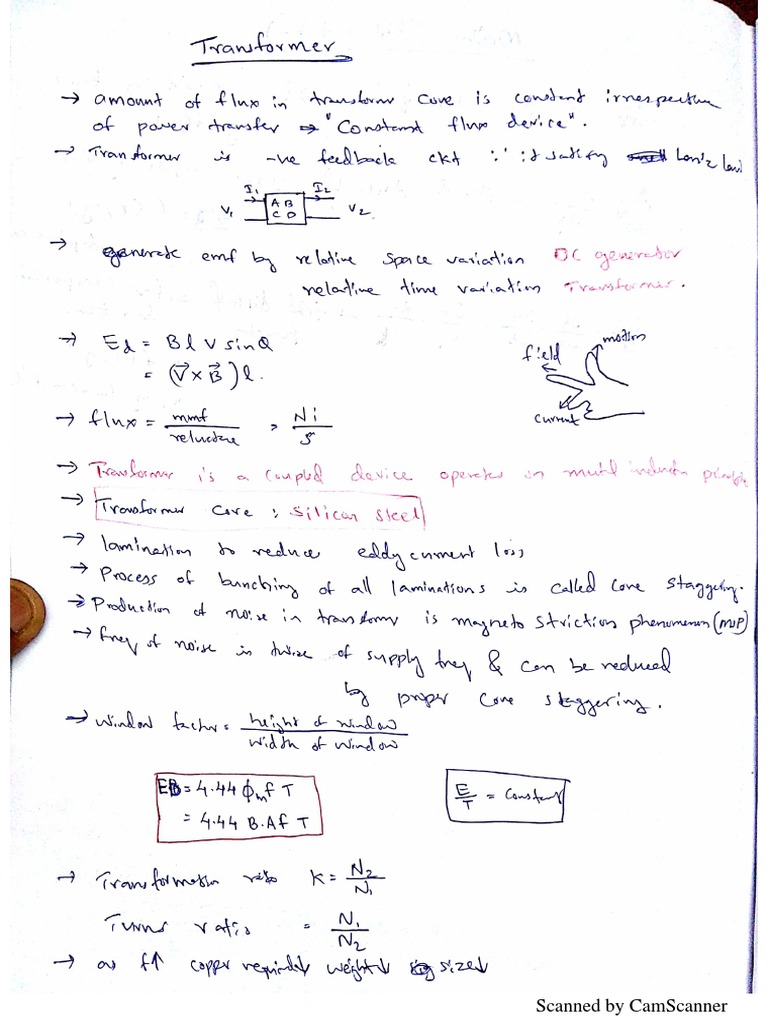 Transformer
→ amount of flux in transformer core is constant irrespective
of power transfer → "Constant flux device".
→ Transformer is -ve feedback ckt ∵ it satisfy Lenz law
I1 I2
V1 A B V2
C D
→ generate emf by relative space variation DC generator
relative time variation Transformer.
→ Ed = B l v sinθ
= (V⃗ × B⃗) l.
motion
field
current
→ flux = mmf / reluctance = Ni / S
→ Transformer is a coupled device operates on mutual induction principle
→ Transformer core : Silicon steel
→ lamination to reduce eddy current loss
→ Process of bunching of all laminations is called core staggering.
→ Production of noise in transformer is magneto striction phenomenon (MSP)
→ freq of noise is twice of supply freq & can be reduced
by proper core staggering.
→ window factor = height of window / width of window
E = 4.44 ϕm f T
= 4.44 B.A f T
E/T = constant
→ Transformation ratio K = N2/N1
Turns ratio = N1/N2
→ as f↑ copper required↓ weight↓ size↓
Scanned by CamScanner